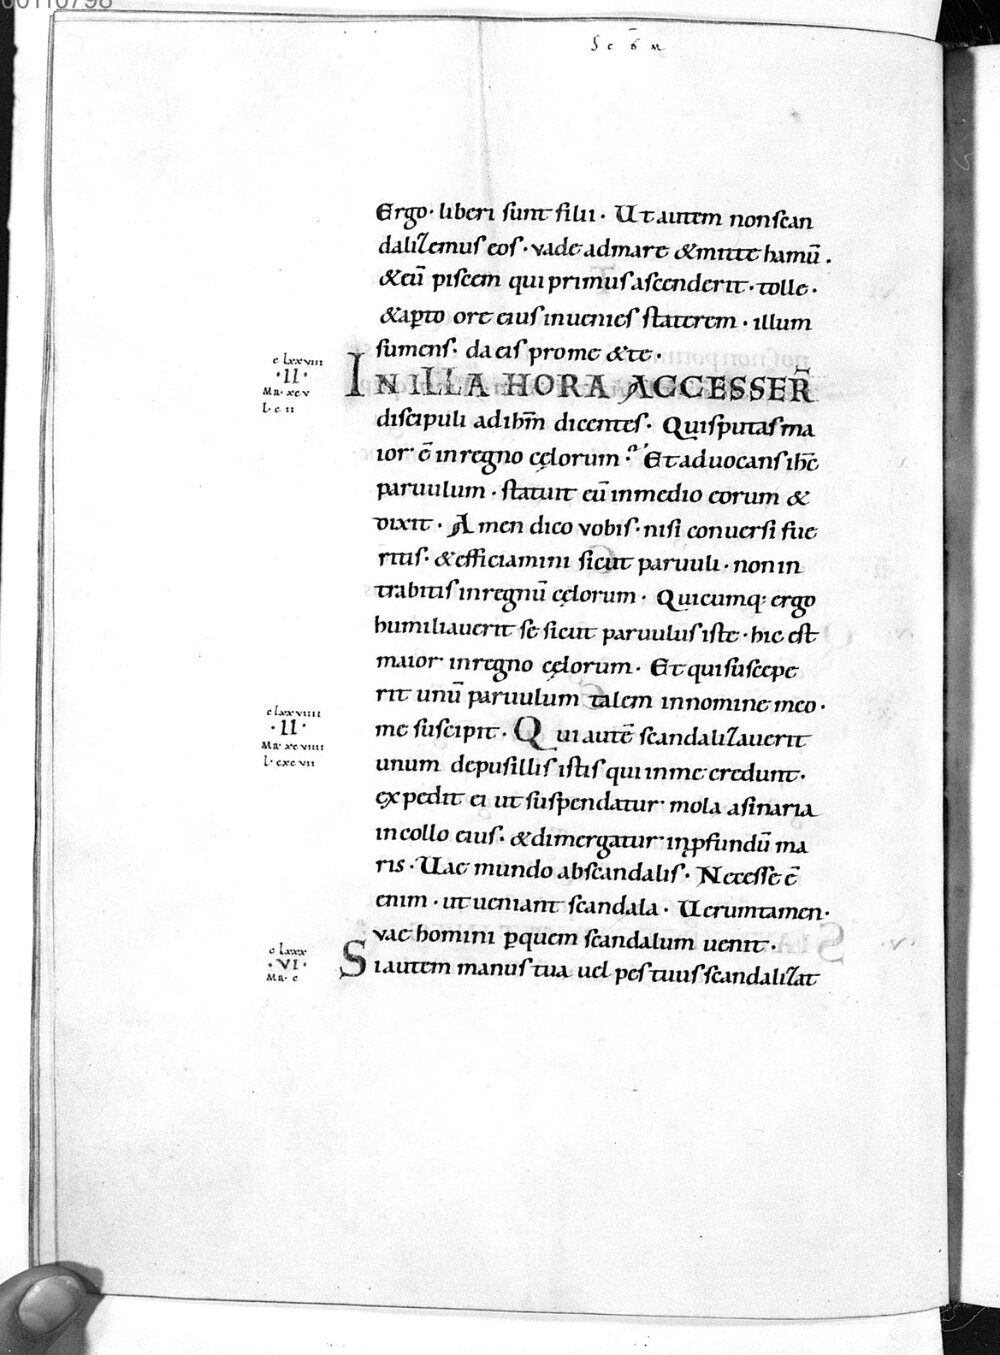 Sc̄ð M
Ergo· liberi sunt filii· Ut autem non scan
dalizemus eos· vade ad mare & mitte hamū·
& eū piscem qui primus ascenderit· tolle·
& apto ore eius inuenies staterem· illum
sumens· da eis pro me & te·
c lxxviii
·II·
Ma· xcv
L· c ii
IN ILLA HORA ACCESSER̄
discipuli ad ihm̄ dicentes· Quis putas ma
ior ē in regno cęlorum·? Et aduocans ihc̄
paruulum· statuit eū in medio eorum &
dixit· Amen dico vobis· nisi conuersi fue
ritis· & efficiamini sicut paruuli· non in
trabitis in regnū cęlorum· Quicumq: ergo
humiliauerit se sicut paruulus iste· hic est
maior in regno cęlorum· Et qui suscepe
rit unū paruulum talem in nomine meo·
c lxxviiii
·II·
Ma· xcviiii
L· cxcvii
me suscipit· Qui autē scandalizauerit
unum de pusillis istis qui in me credunt·
expedit ei ut suspendatur mola asinaria
in collo eius· & dimergatur in ꝓfundū ma
ris· Uae mundo ab scandalis· Necesse ē
enim· ut ueniant scandala· Uerumtamen·
vae homini ꝑ quem scandalum uenit·
c lxxx
·VI·
Ma· c
Si autem manus tua uel pes tuus scandalizat